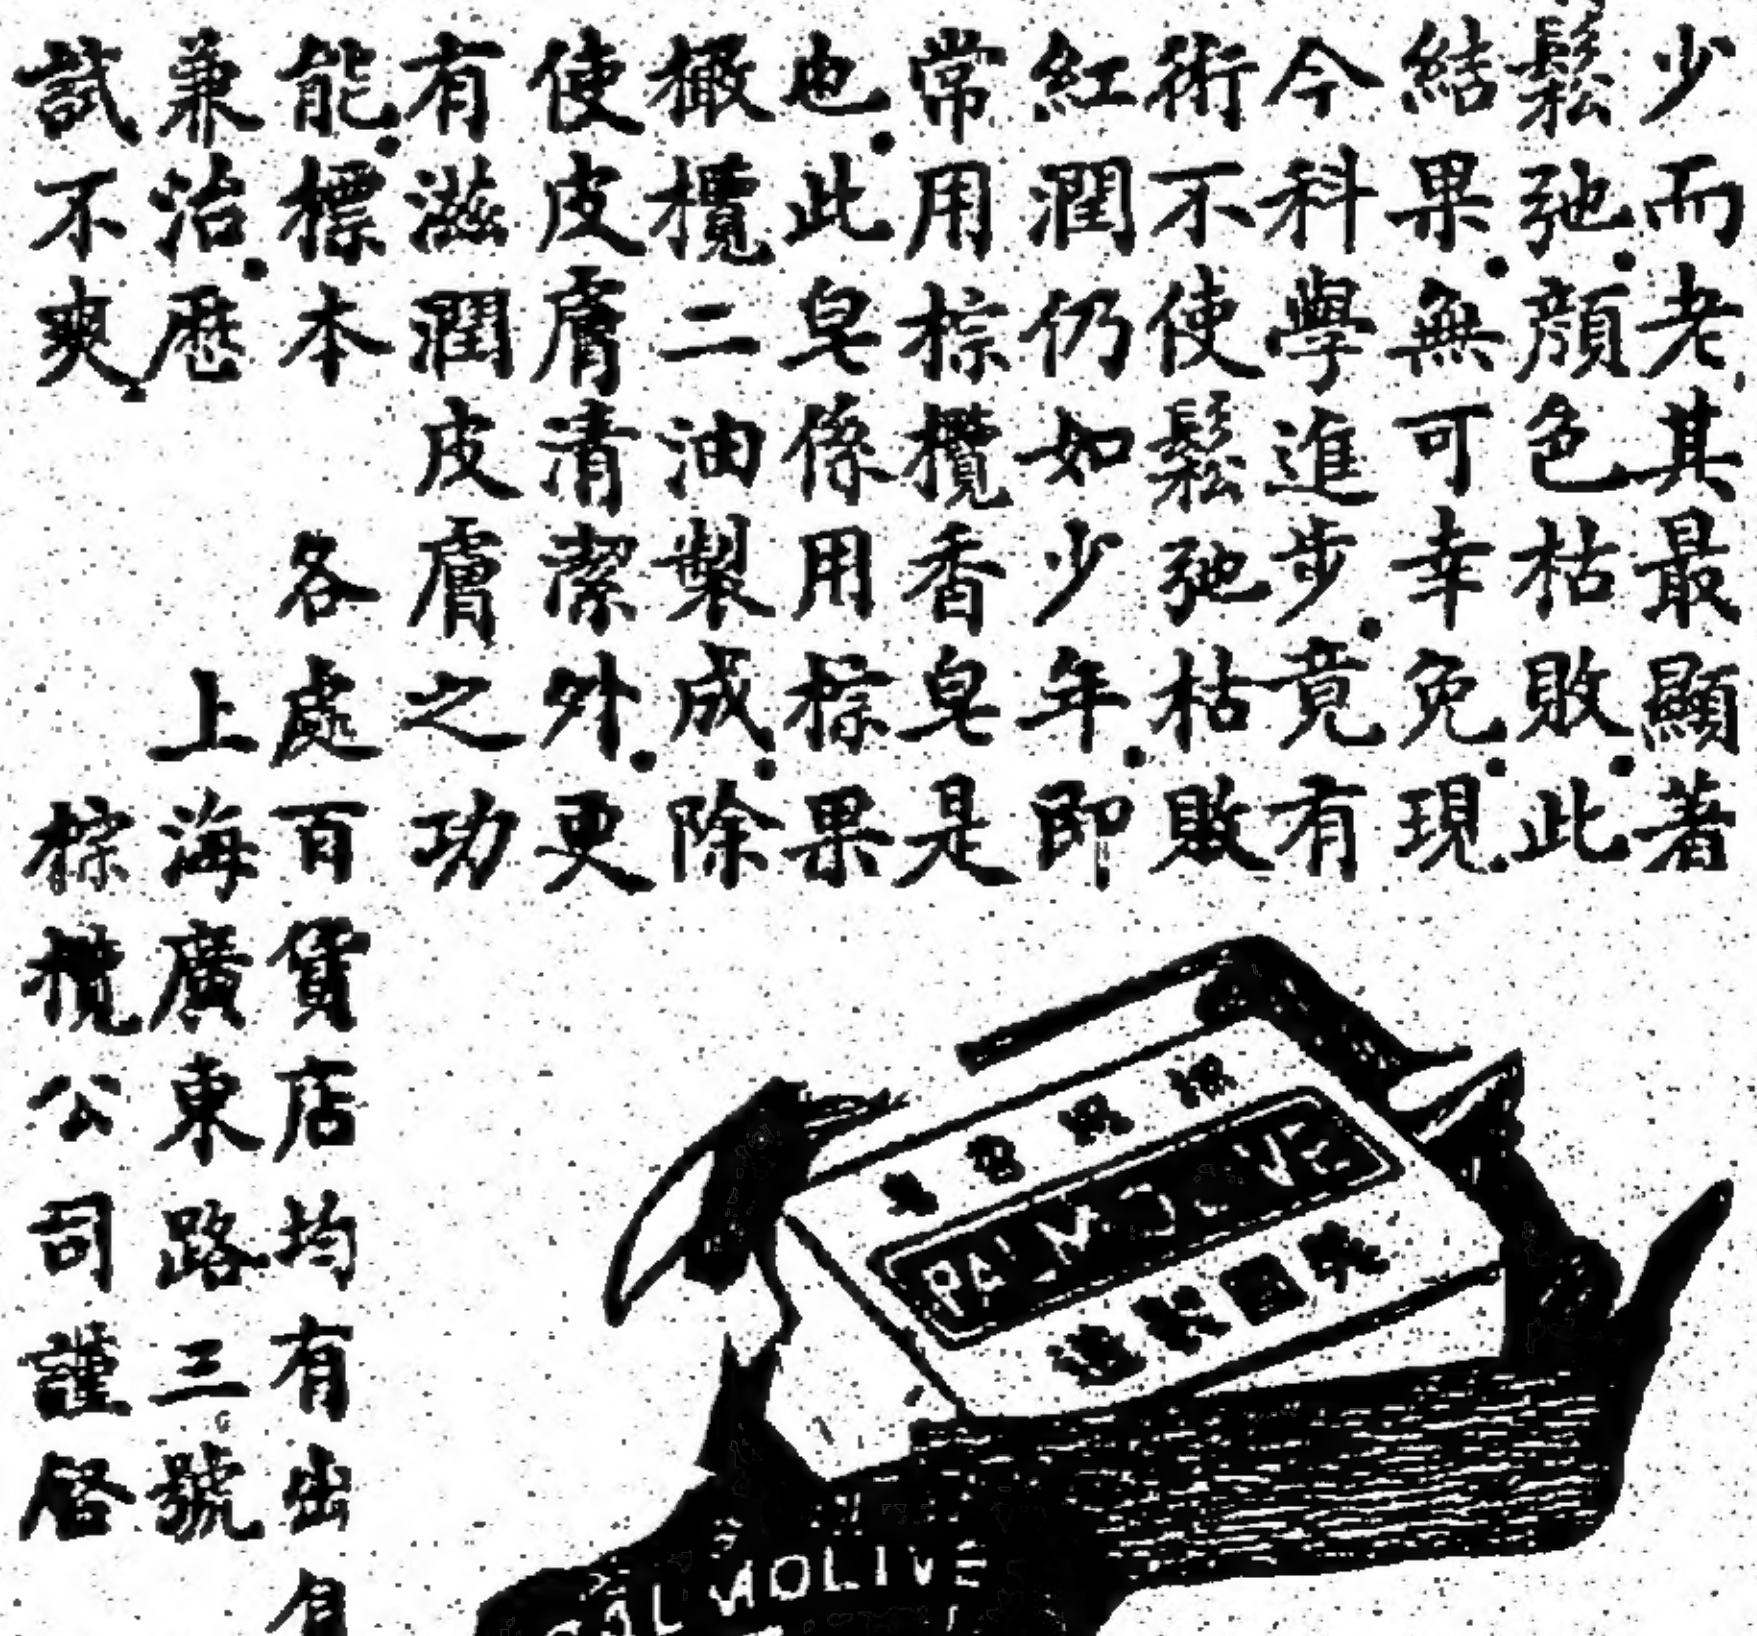 少而老.其最顯著
鬆弛.顏色枯敗.此
結果.無可幸免.現
今科學進步.竟有
術不使鬆弛枯敗
紅潤仍如少年.即
常用棕欖香皂是
也.此皂係用棕果
橄欖二油製成.除
使皮膚清潔外.更
有滋潤皮膚之功
能.標本
兼治.歷
試不爽.
各處百貨店均有出
上海廣東路三號
棕欖公司謹啓
PALMOLIVE
PALMOLIVE